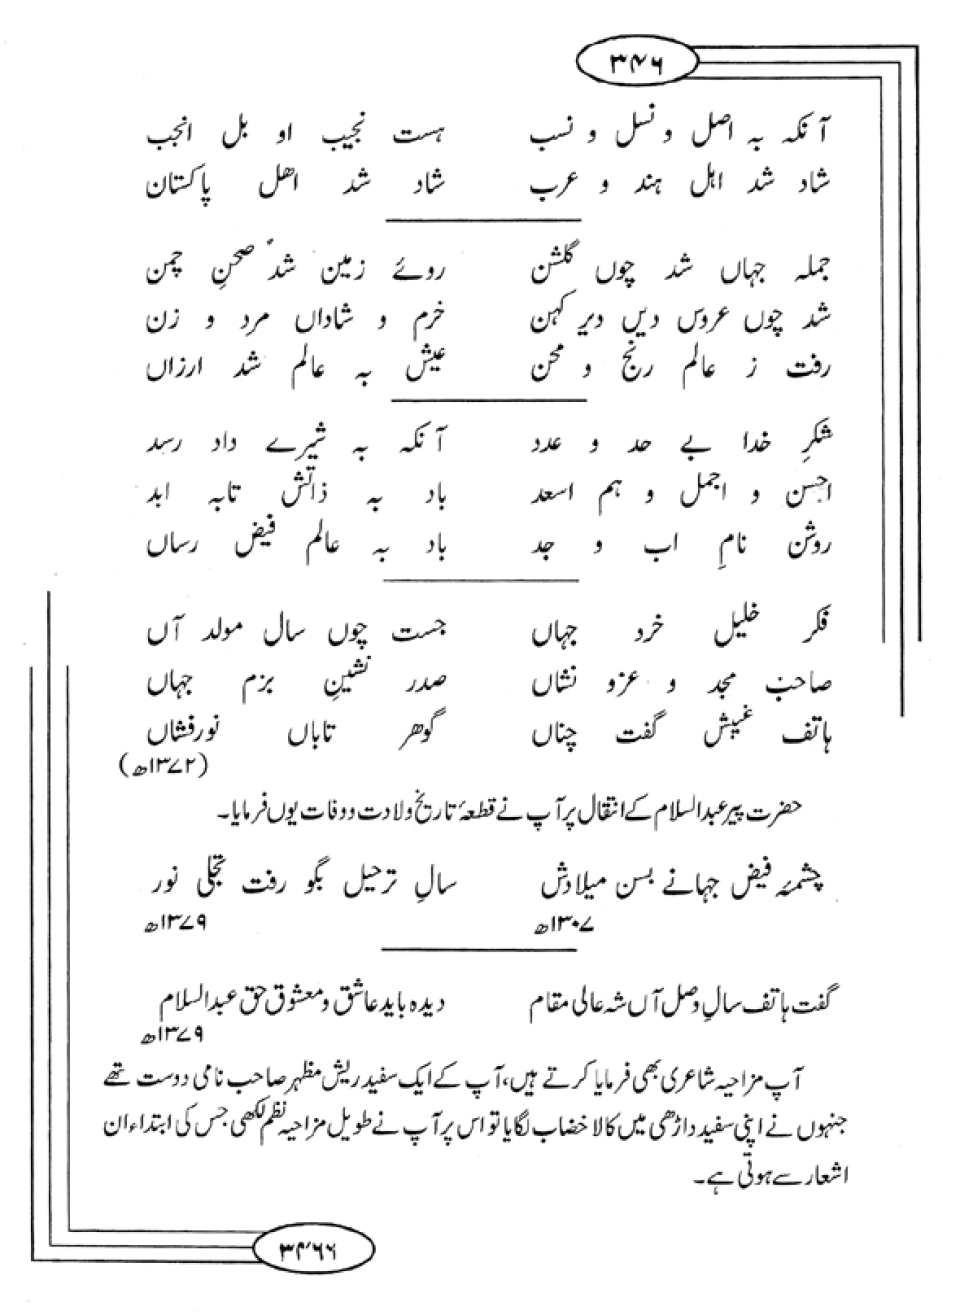 ۳۴۶
آنکہ بہ اصل و نسل و نسب ہست نجیب او بل انجب
شاد شد اہل ہند و عرب شاد شد اھل پاکستان
جملہ جہاں شد چوں گلشن روئے زمین شد صحنِ چمن
شد چوں عروس دیں دیر کہن خرم و شاداں مرد و زن
رفت ز عالم رنج و محن عیش بہ عالم شد ارزاں
شکرِ خدا بے حد و عدد آنکہ بہ شیرے داد رسد
احسن و اجمل و ہم اسعد باد بہ ذاتش تابہ ابد
روشن نامِ اب و جد باد بہ عالم فیض رساں
فکر خلیل خرد جہاں جست چوں سال مولد آں
صاحب مجد و عزو نشاں صدر نشینِ بزم جہاں
ہاتف غیبش گفت چناں گوھر تاباں نورفشاں
(۱۳۷۲ھ)
حضرت پیر عبدالسلام کے انتقال پر آپ نے قطعۂ تاریخ ولادت و وفات یوں فرمایا۔
چشمۂ فیض جہانے بسن میلادش سالِ ترحیل بگو رفت تجلی نور
۱۳۰۷ھ ۱۳۷۹ھ
گفت ہاتف سالِ وصل آں شہ عالی مقام دیدہ باید عاشق و معشوق حق عبدالسلام
۱۳۷۹ھ
آپ مزاحیہ شاعری بھی فرمایا کرتے ہیں، آپ کے ایک سفید ریش مظہر صاحب نامی دوست تھے
جنہوں نے اپنی سفید داڑھی میں کالا خضاب لگایا تو اس پر آپ نے طویل مزاحیہ نظم لکھی جس کی ابتداء ان
اشعار سے ہوتی ہے۔